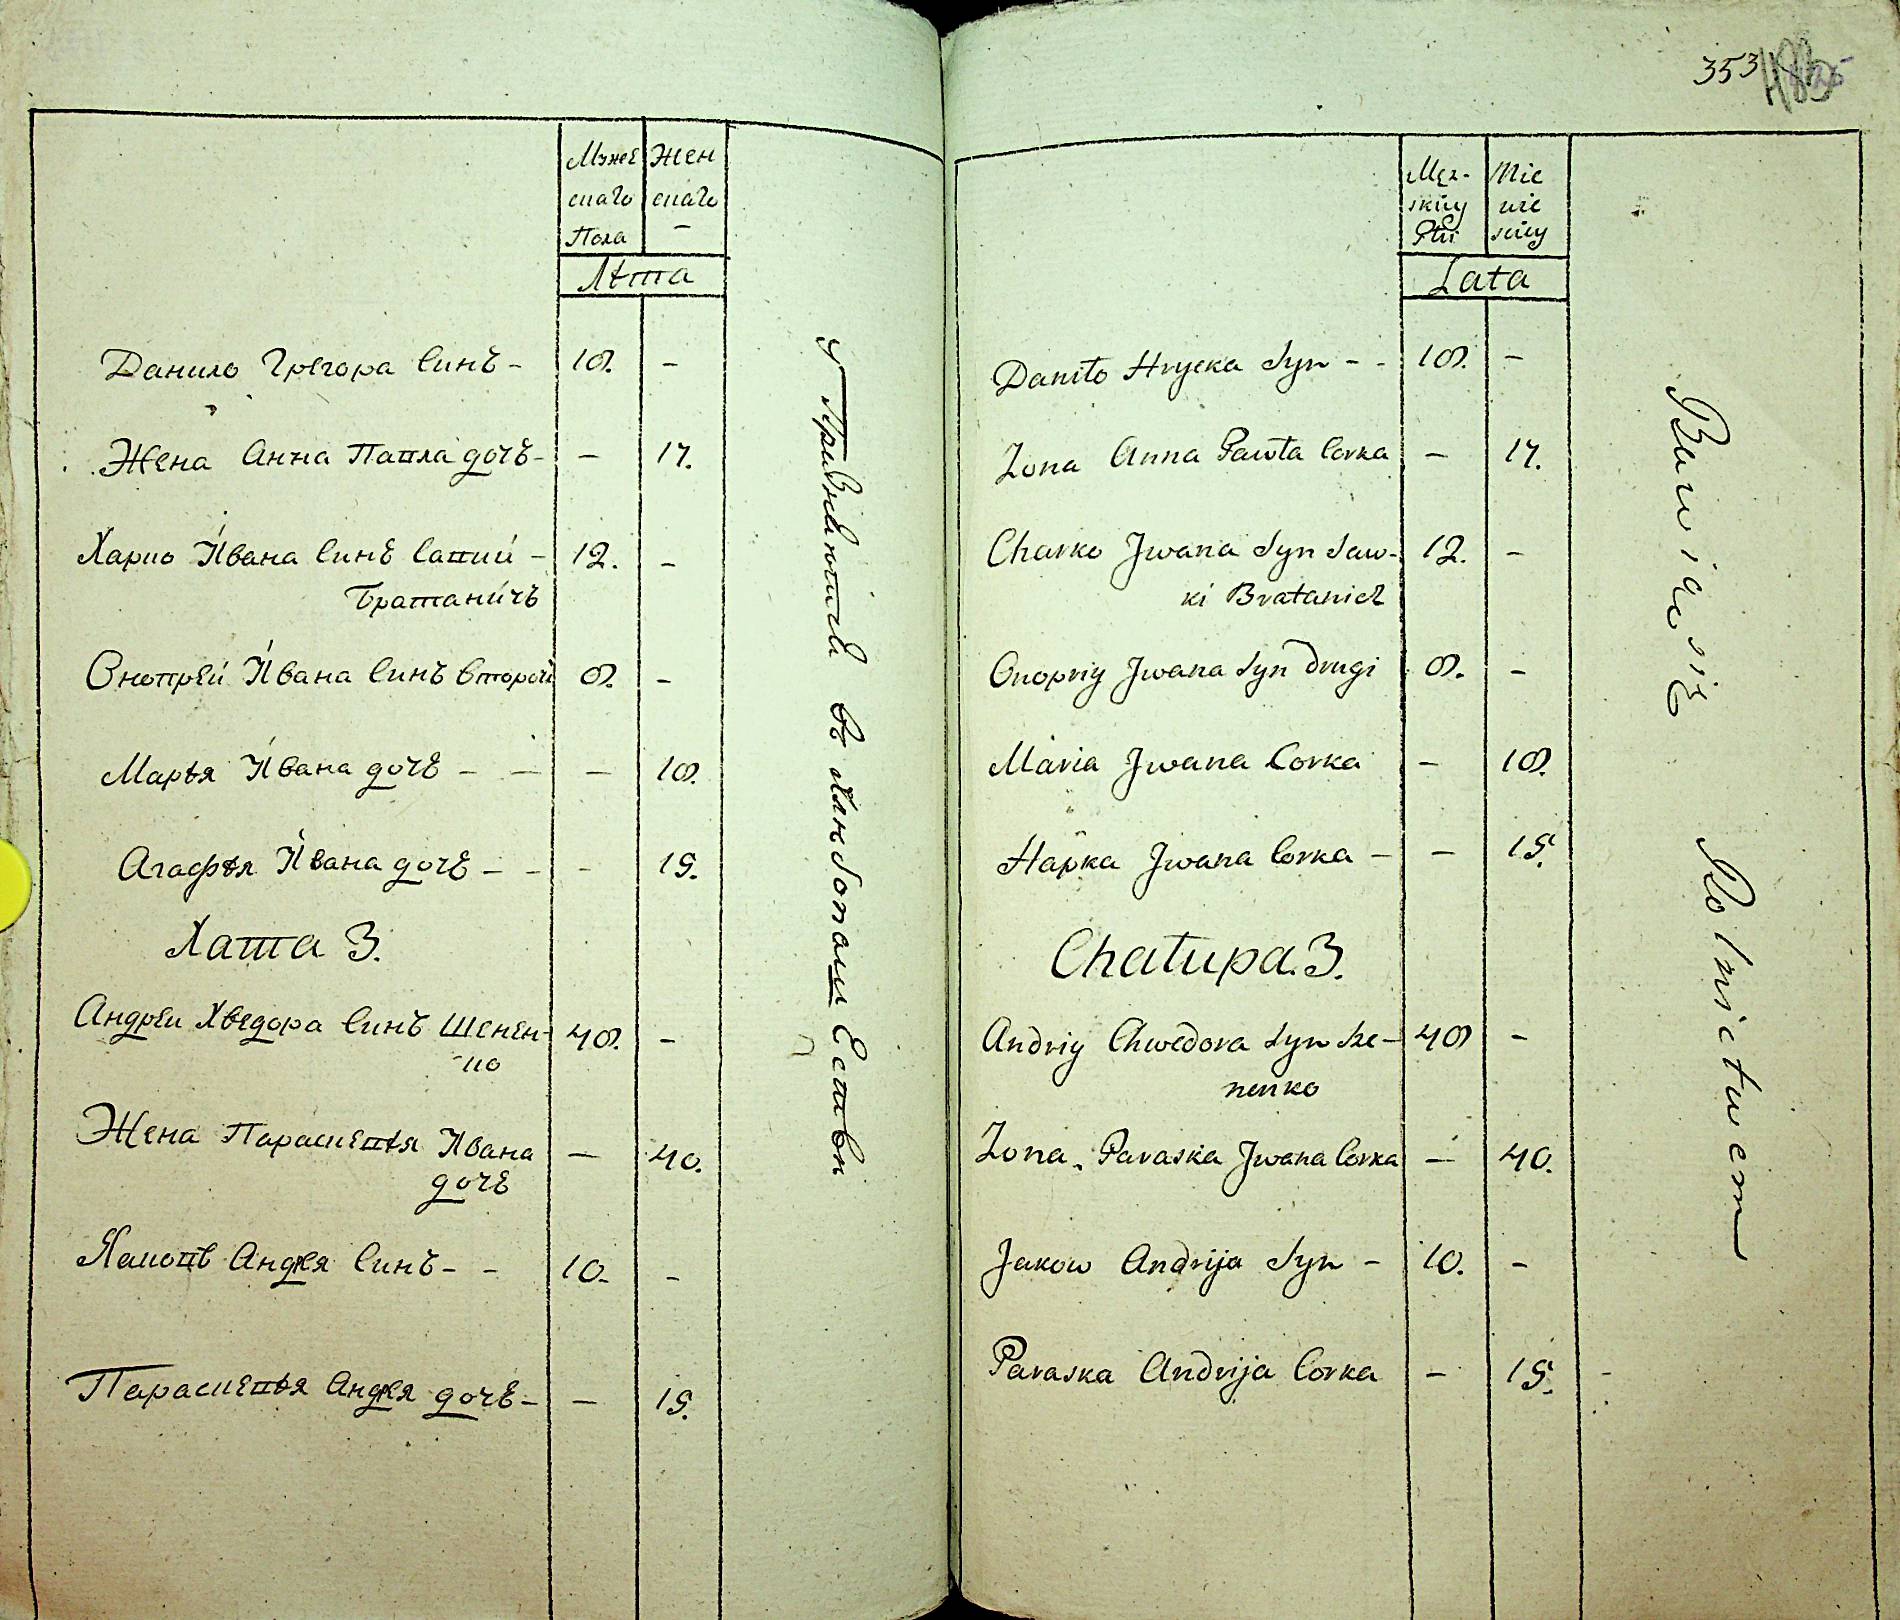 Муже Жен
скаго скаго
Пола –
Лѣта
Данило Грегора Синъ – 18. –
Жена Анна Павла дочь – – 17.
Харко Ивана Синъ Савки – 12. –
Братаничъ
Онопрей Ивана Синъ второй 8. –
Марья Ивана дочь – – – 18.
Агафья Ивана дочь – – – 15.
Хата 3.
Андрей Хведора Синъ Шенен- 48. –
ко
Жена Параскевья Ивана – 40.
дочь
Яковъ Андрея Синъ – – 10. –
Параскевья Андрея дочь – – 15.
353
Męz- Nie
skiey wie
Płci sciey
Lata
Daniło Hrycka Syn – – 18. –
Zona Anna Pawła Corka – 17.
Charko Jwana Syn Saw- 12. –
ki Bratanicz
Onopriy Jwana Syn drugi 8. –
Maria Jwana Corka – 18.
Hapka Jwana Corka – – 15.
Chałupa. 3.
Andriy Chwedora Syn Sze- 48 –
nenko
Zona. Paraska Jwana Corka – 40.
Jakow Andrija Syn – 10. –
Paraska Andrija Corka – 15. –
Bawią się Rolnictwem